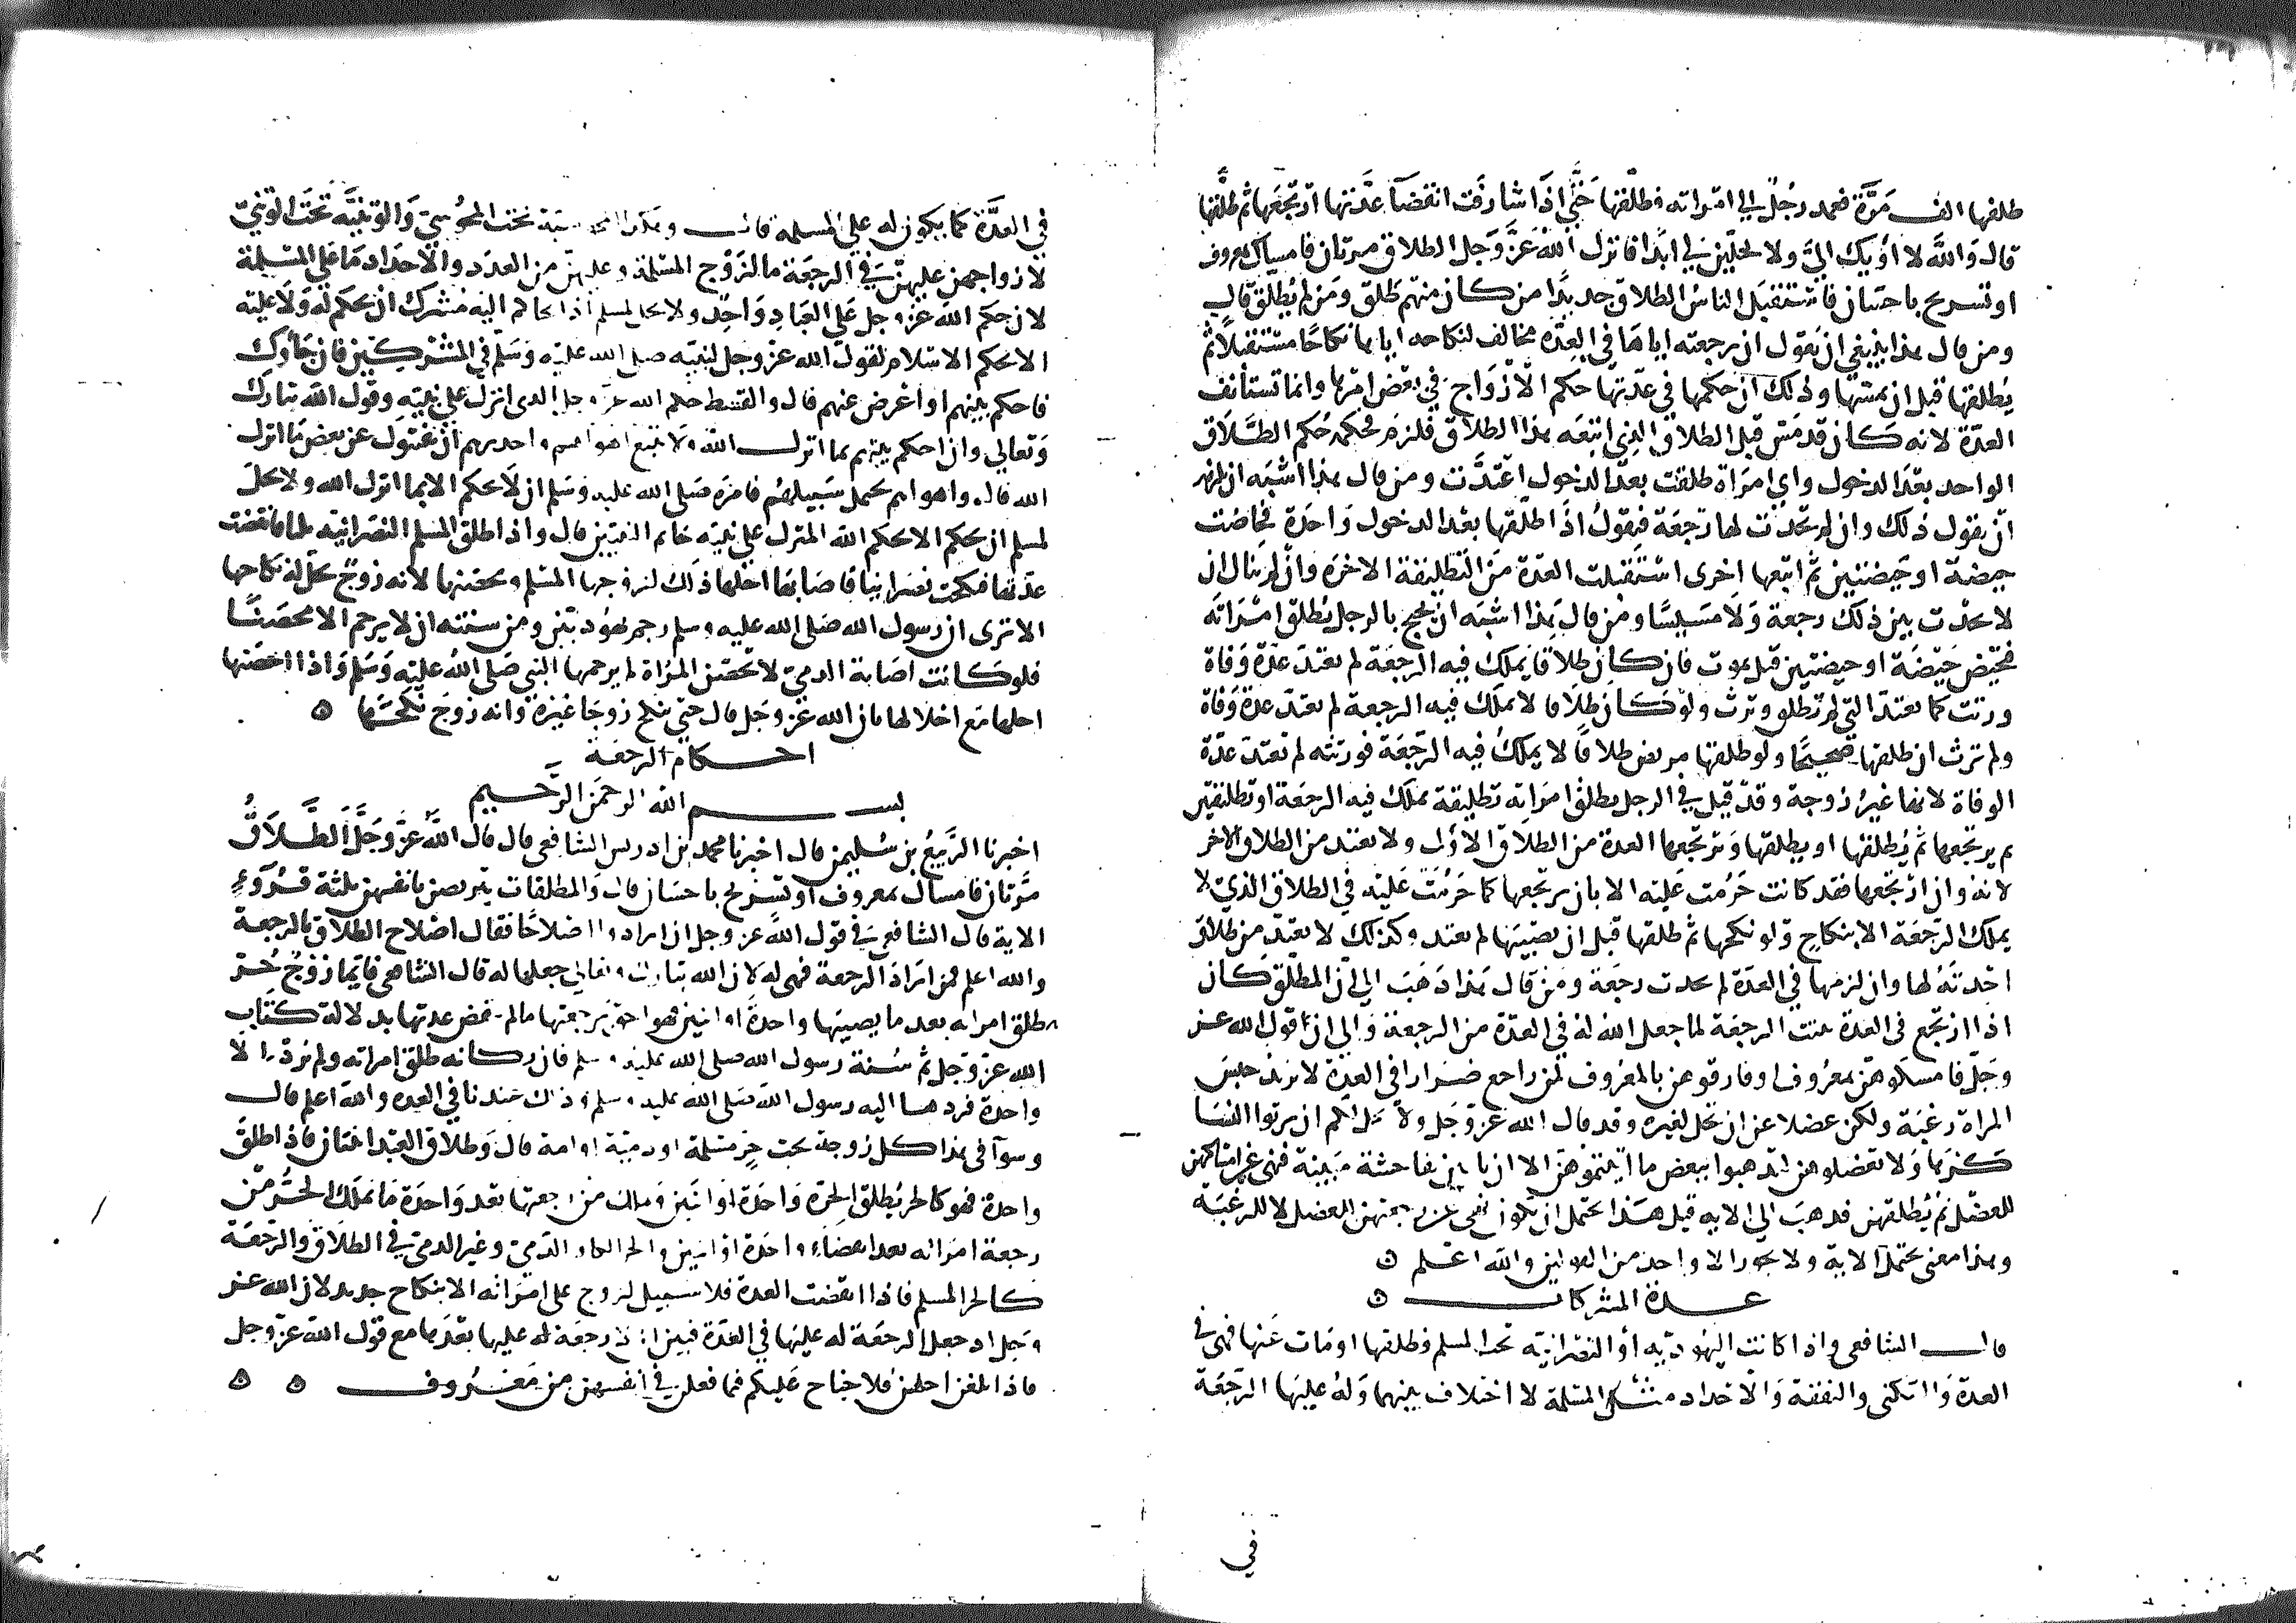 طلقها الف مرة فعمد رجل الي امراته فطلقها حتي اذا شارفت انقضآ عدتها ارتجعها ثم طلقها
قال والله لا آويك الي ولا تحلين لي ابدا فانزل الله عز وجل الطلاق مرتان فامساك بمعروف
او تسريح باحسان فاستقبل الناس الطلاق جديدا من كان منهم طلق ومن لم يطلق قال
ومن قال هذا ينبغي ان يقول ان رجعته اياها في العدة مخالف لنكاحه اياها نكاحا مستقبلا ثم
يطلقها قبل ان يمسها وذلك ان حكمها في عدتها حكم الازواج في بعض امرها وانما تستأنف
العدة لانه كان قد مس قبل الطلاق الذي اتبعه هذا الطلاق فلزم فحكمه حكم الطلاق
الواحد بعد الدخول واي امراة طلقت بعد الدخول اعتدت ومن قال هذا اشبه ان يلزمه
ان يقول ذلك وان لم يحدث لها رجعة فيقول اذا طلقها بعد الدخول واحدة فحاضت
حيضة او حيضتين ثم اتبعها اخرى استقبلت العدة من التطليقة الاخره وان لم ينال ان
لا يحدث بين ذلك رجعة ولا مسيسا ومن قال هذا اشبه ان يحتج بالرجل يطلق امراته
فتحيض حيضة او حيضتين ثم يموت فان كان طلاقا يملك فيه الرجعة لم تعتد عدة وفاة
ورثت كما تعتد التي لم تطلق وترث ولو كان طلاقا لا يملك فيه الرجعة لم تعتد عدة وفاة
ولم ترث ان طلقها صحيحا ولو طلقها مريض طلاقا لا يملك فيه الرجعة فورثته لم تعتد عدة
الوفاة لانها غير زوجة وقد قيل في الرجل يطلق امراته تطليقة يملك فيه الرجعة او تطليقتين
ثم يرتجعها ثم يطلقها او يطلقها وترتجعها العدة من الطلاق الاول ولا تعتد من الطلاق الاخر
لانه وان ارتجعها فقد كانت حرمت عليه الا بان يرتجعها كما حرمت عليه في الطلاق الذي لا
يملك الرجعة الا بنكاح ولو نكحها ثم طلقها قبل ان يصيبها لم تعتد وكذلك لا تعتد من طلاق
احدثه لها وان لزمها في العدة لم يحدث رجعة ومن قال هذا ذهب الي ان المطلق كان
اذا ارتجع في العدة ثبتت الرجعة لما جعل الله له في العدة من الرجعة والي ان قول الله عز
وجل فامسكوهن بمعروف او فارقوهن بالمعروف لمن راجع ضرارا في العدة لا يريد حبس
المراة رغبة ولكن عضلا عن ان تحل لغيره وقد قال الله عز وجل ولا يحل لكم ان ترثوا النسا
كرها ولا تعضلوهن لتذهبوا ببعض ما اتيتموهن الا ان ياتين بفاحشة مبينة فنهى عن امساكهن
للعضل ثم يطلقهن فذهب الي الايه قبل هذا يحتمل ان تكون نهى عن رجعتهن للعضل لا للرغبه
وهذا معنى يحتمل الاية ولا يجوز الا واحد من القولين والله اعلم
عدة المشركات
قال الشافعي واذا كانت اليهودية أو النصرانية تحت المسلم فطلقها او مات عنها فهي في
العدة والسكنى والنفقة والاحداد مثل المسلمة لا اختلاف بينهما وله عليها الرجعة
في
في العدة كما يكون له على المسلمة قال وهكذا المجوسية تحت المجوسي والوثنية تحت الوثني
لازواجهن عليهن في الرجعة ما لزوج المسلمة وعليهن من العدد والاحداد ما على المسلمة
لان حكم الله عز وجل على العباد واحد ولا يحل لمسلم اذا تحاكم اليه مشرك ان يحكم له ولا عليه
الا بحكم الاسلام لقول الله عز وجل لنبيه صلى الله عليه وسلم في المشركين فان جاؤك
فاحكم بينهم او اعرض عنهم قال والقسط حكم الله عز وجل الذى انزل على نبيه وقول الله تبارك
وتعالي وان احكم بينهم بما انزل الله ولا تتبع اهواهم واحذرهم ان يفتنوك عن بعض ما انزل
الله قال واهواهم يحتمل سبيلهم فامره صلى الله عليه وسلم ان لا يحكم الا بما انزل الله ولا يحل
لمسلم ان يحكم الا بحكم الله المنزل على نبيه خاتم النبيين قال واذا طلق المسلم النصرانية ثلثا فانقضت
عدتها فنكحت نصرانيا فاصابها احلها ذلك لزوجها المسلم ويحصنها لانه زوج يحل له نكاحها
الا ترى ان رسول الله صلى الله عليه وسلم رجم يهوديين ومن سنته ان لا يرجم الا محصنا
فلو كانت اصابة الذمي لا تحصن المراة لم يرجمها النبي صلى الله عليه وسلم واذا احصنها
احلها مع احلالها بان الله عز وجل قال حتي تنكح زوجا غيره وانه زوج نكحها
احكام الرجعة
بسم الله الرحمن الرحيم
اخبرنا الربيع بن سليمن قال اخبرنا محمد بن ادريس الشافعي قال قال الله عز وجل الطلاق
مرتان فامساك بمعروف او تسريح باحسان قال والمطلقات يتربصن بانفسهن ثلثة قروء
الاية قال الشافعي في قول الله عز وجل ان ارادوا اصلاحا فقال اصلاح الطلاق بالرجعة
والله اعلم فمن اراد الرجعة فهي له لان الله تبارك وتعالي جعلها له قال الشافعي فايما زوج حر
طلق امراته بعد ما يصيبها واحدة او اثنين فهو احق برجعتها ما لم تنقض عدتها بدلالة كتاب
الله عز وجل ثم سنة رسول الله صلى الله عليه وسلم فان ركانه طلق امراته ولم يرد الا
واحدة فردها اليه رسول الله صلى الله عليه وسلم وذلك عندنا في العده والله اعلم قال
وسوآ في هذا كل زوجة تحت حر مسلمة او ذمية او امة قال وطلاق العبد اثنتان فاذا طلق
واحدة فهو كالحر يطلق الحرة واحدة او اثنين وملك من رجعتها بعد واحدة ما يملك الحر من
رجعة امراته بعد واحدة او اثنين والحر الذمي وغير الذمي في الطلاق والرجعة
كالحر المسلم فاذا انقضت العدة فلا سبيل لزوج على امراته الا بنكاح جديد لان الله عز
وجل اذ جعل الرجعة له عليها في العدة فبين ان لا رجعة له عليها بعدها مع قول الله عز وجل
فاذا بلغن اجلهن فلا جناح عليكم فيما فعلن في انفسهن من معروف